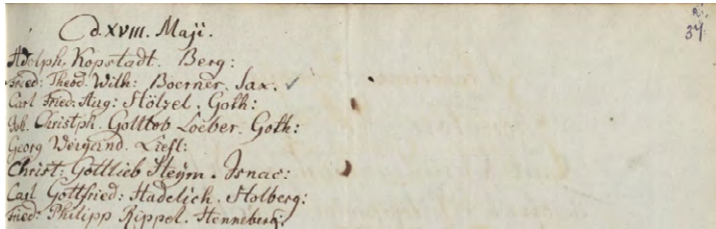 d. XVIII. Maji.
Adolph. Kopstadt. Berg:
Fried: Theod. Wilh: Boerner. Sax.
Carl Fried: Aug: Stölzel. Goth:
Joh. Christph. Gottlob Loeber. Goth:
Georg Weigand. Liefl:
Christ: Gottlieb Heym. Isnac:
Carl Gottfried: Hadelich. Stolberg:
Fried: Philipp Rippel. Henneberg:
37.